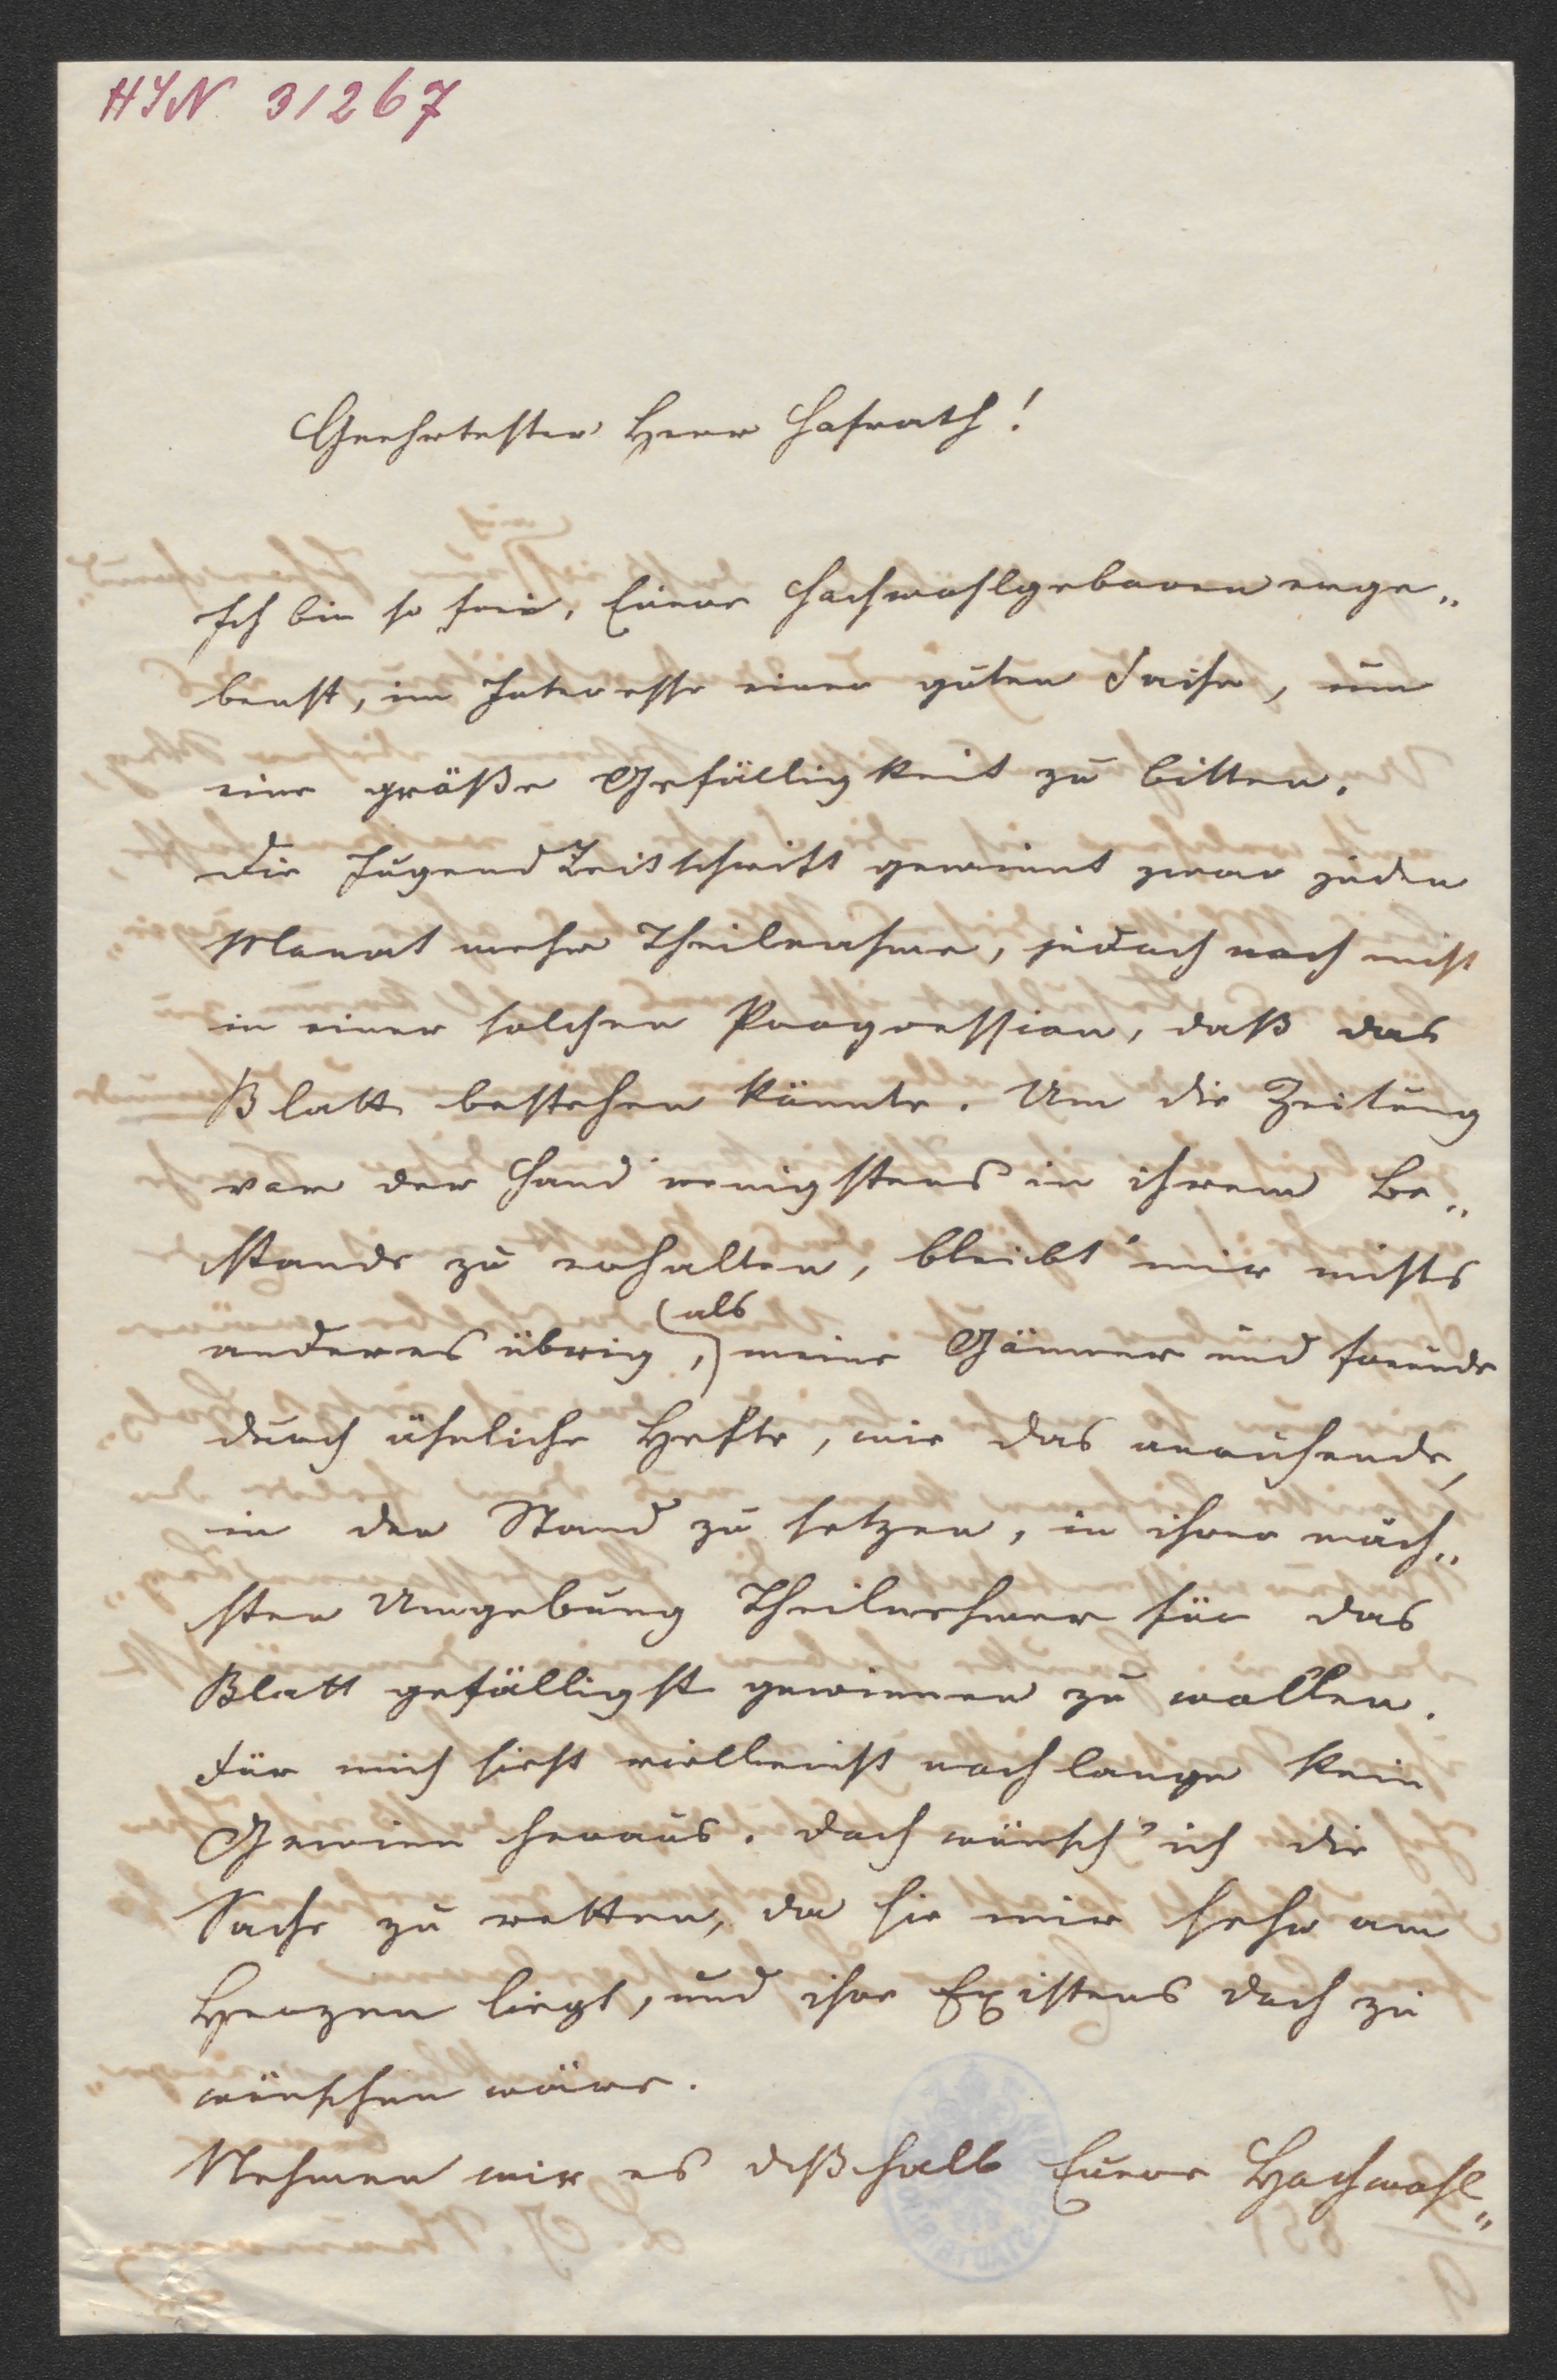 HIN 31267
Geehrtester Herr Hofrath!
Ich bin so frei, Euere Hochwohlgeboren erge„
benst, im Interesse einer guten Sache, um
eine größe Gefälligkeit zu bitten.
Die JugendZeitschrift gewinnt zwar jeden
Monat mehr Theilnahme, jedoch noch nicht
in einer solchen Progression, daß das
Blatt bestehen könnte. Um die Zeitung
vor der Hand wenigstens in ihrem Be„
stande zu erhalten, bleibt mir nichts
anderes übrig, als meine Gönner und Freunde
durch ähnliche Hefte, wie das anruhende,
in den Stand zu setzen, in ihrer näch„
sten Umgebung Theilnehmer für das
Blatt gefälligst gewinnen zu wollen.
Für mich sieht vielleicht noch lange kein
Gewinn heraus. Doch wünsch' ich die
Sache zu retten, da sie mir sehr am
Herzen liegt, und ihre Existens doch zu
wünschen wäre.
Nehmen mir es deßhalb Euere Hochwohl„